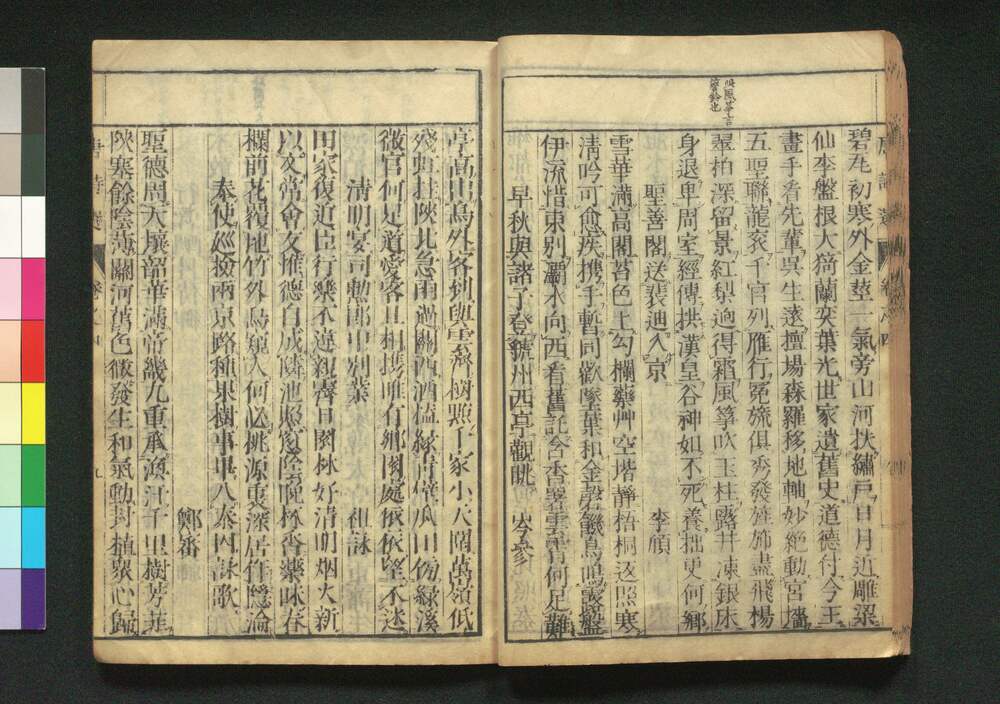 碧瓦初寒外金莖一氣旁山河扶繡戶日月近雕梁
仙李盤根大猗蘭奕葉光世家遺舊史道德付今王
畫手看先輩吳生遠擅場森羅移地軸妙絕動宮牆
五聖聯龍袞千官列雁行冕旒俱秀發旌旆盡飛楊
翠柏深留景紅梨迥得霜風箏吹玉柱露井凍銀床
身退卑周室經傳拱漢皇谷神如不死養拙更何鄉
聖善閣送裴迪入京 李頎
雪華滿高閣苔色上勾欄藥艸空堦靜梧桐返照寒
清吟可愈疾携手暫同歡墜葉和金磬饑烏鳴露盤
伊流惜東別灞水向西看舊託含香署雲霄何足難
早秋與諸子登虢州西亭觀眺 岑參
亭高出鳥外客到與雲齊樹點千家小天圍萬嶺低
殘虹挂陝北急雨過關西酒榼緣青壁瓜田傍綠溪
微官何足道愛客且相攜唯有鄉園處依依望不迷
清明宴司勳郎中別業 祖詠
田家復近臣行樂不違親霽日園林好清明烟火新
以文常會友推德自成鄰池照窗陰晚杯香藥味春
欄前花覆地竹外鳥窺人何必桃源裏深居作隱淪
奉使巡撿兩京路種果樹事畢入秦因詠歌
鄭審
聖德周天壤韶華滿帝畿九重承渙汗千里樹芳菲
陝塞餘陰薄關河舊色微發生和氣動封植衆心歸
唐詩選 卷之四 九